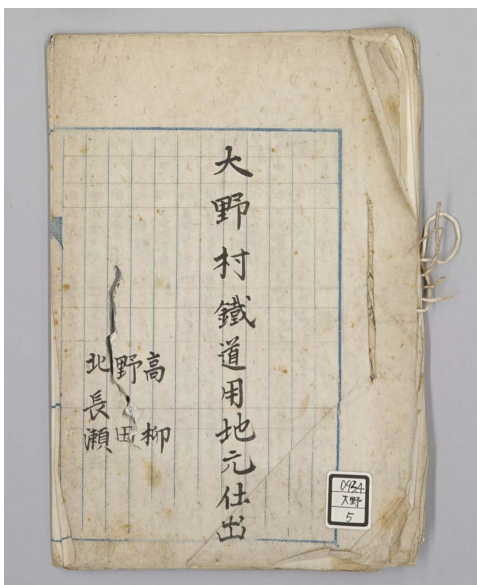 大野村鐵道用地元仕出
高柳
野田
北長瀬
0934
大野
5